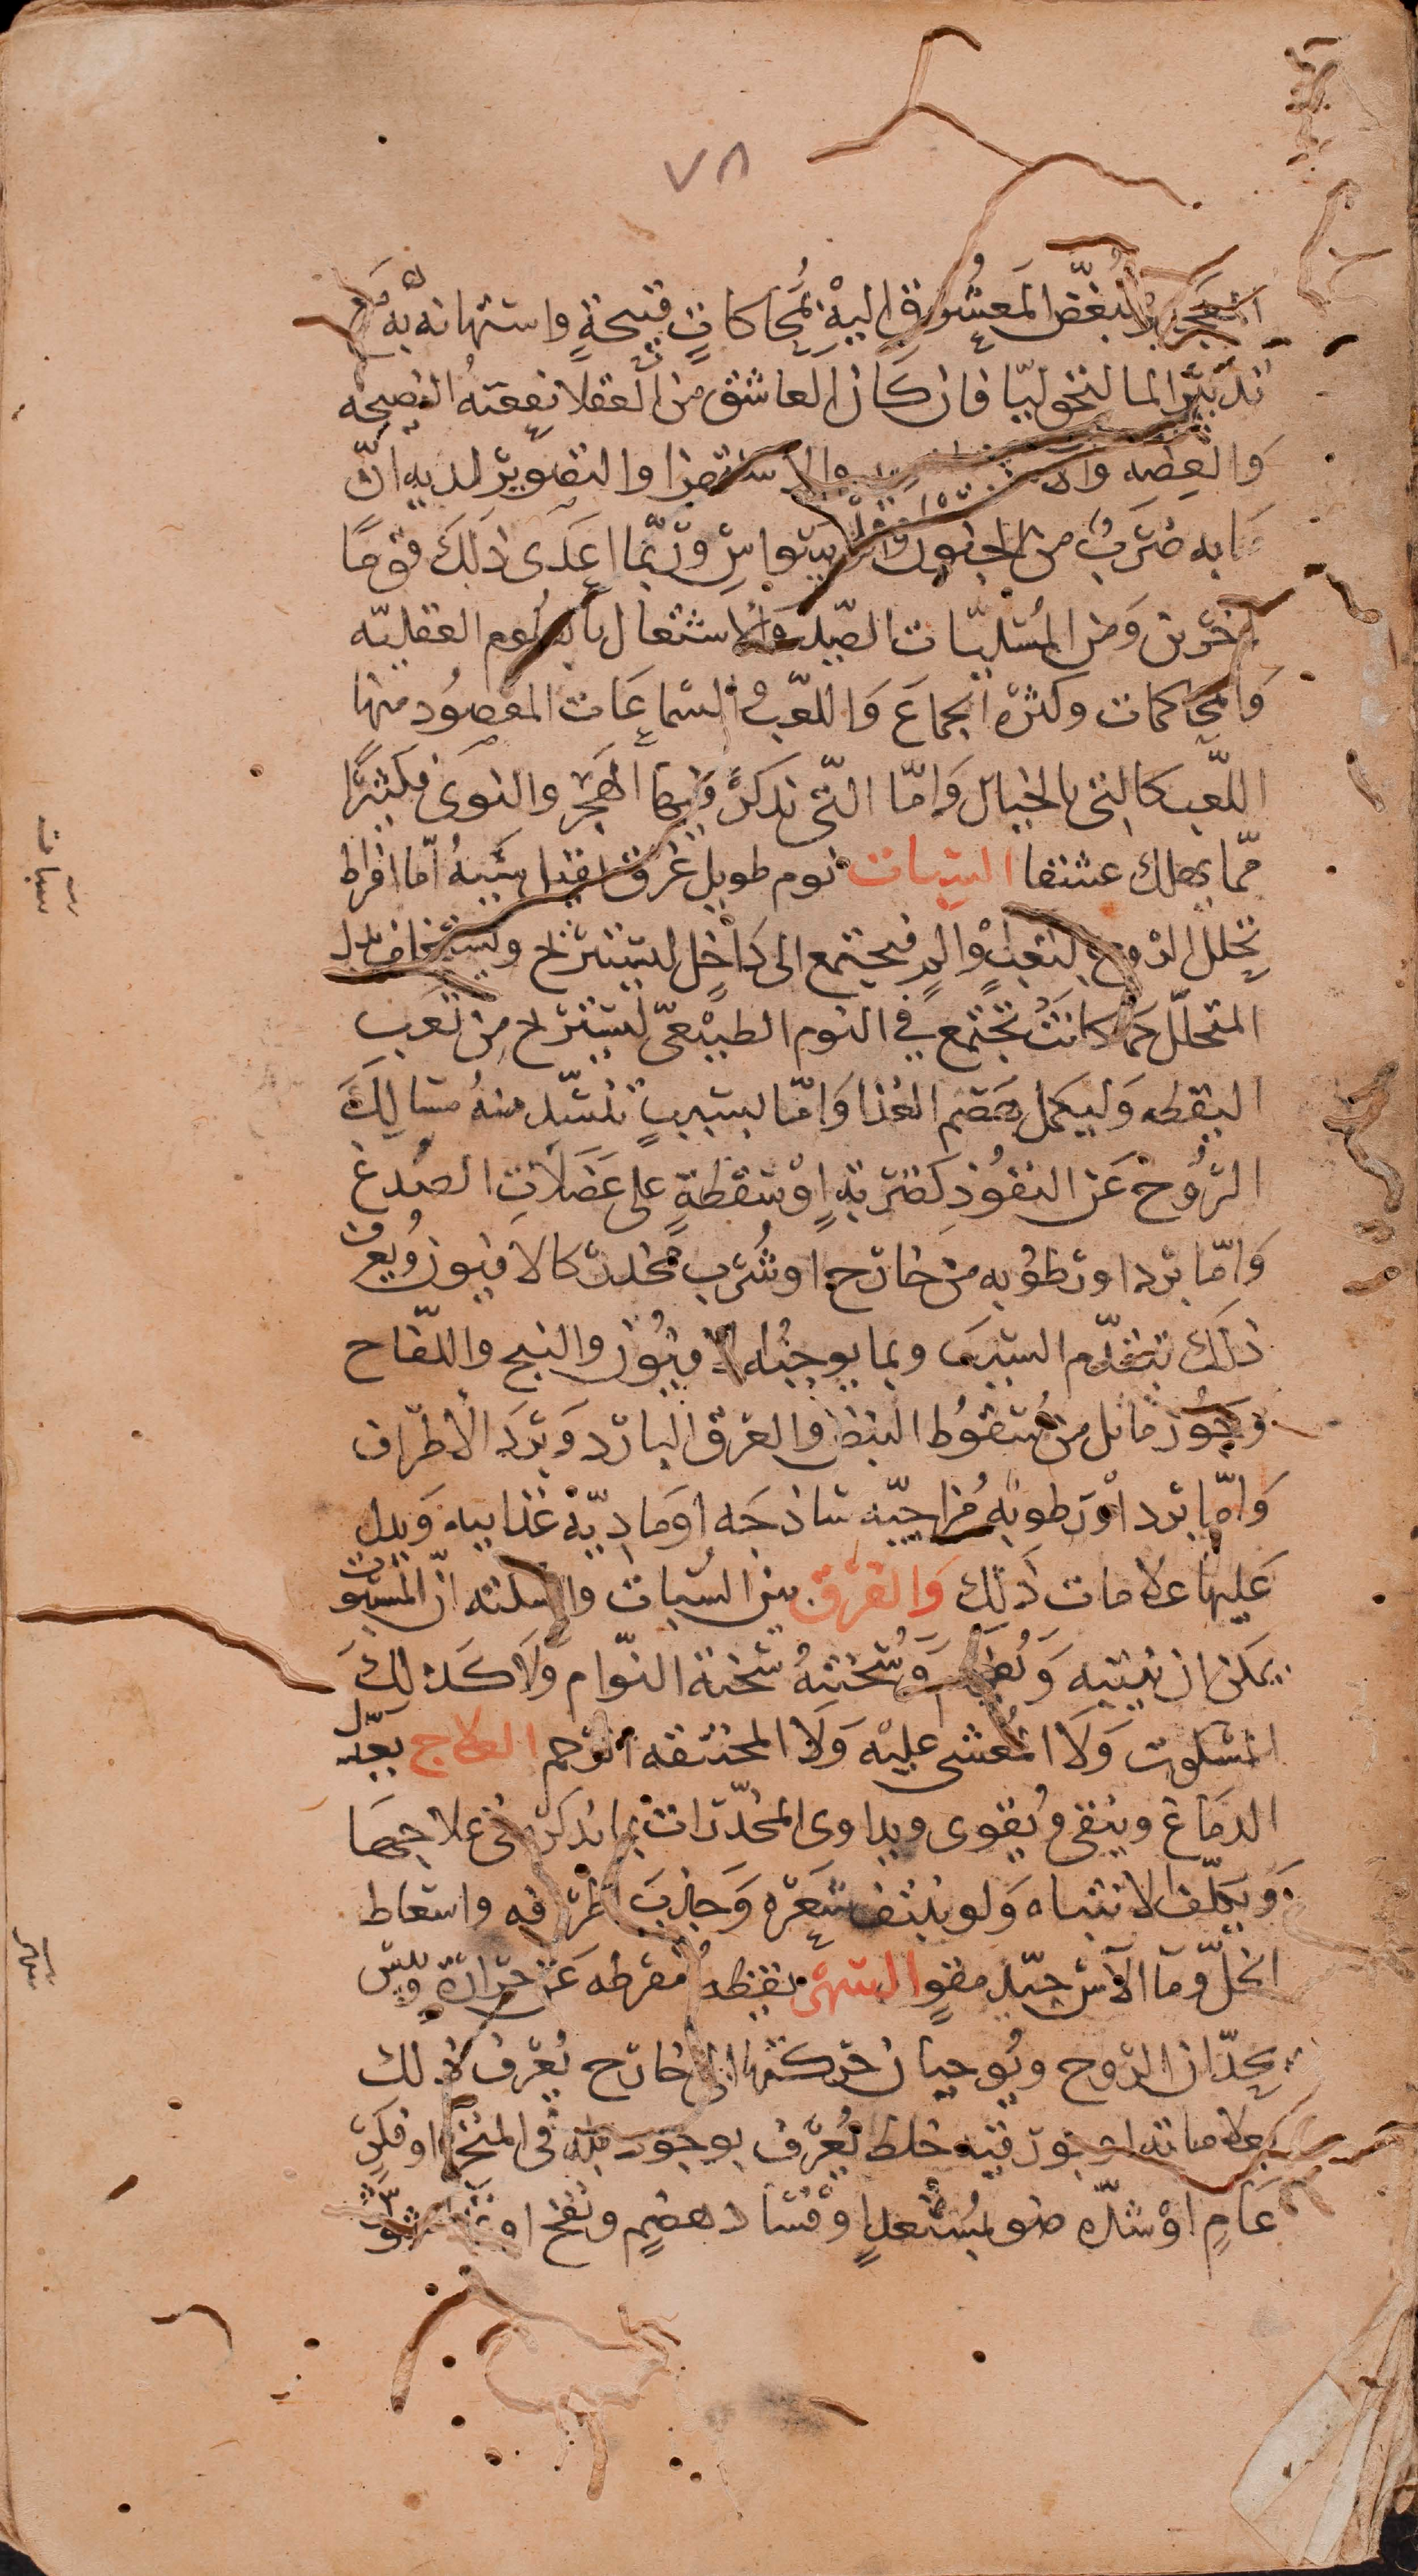 ٧٨
العجايز ببغض المعشوق اليه بمحاكات قبيحة واستهانه به ثم
تدبير المالنخوليا فان كان العاشق من العقلا نفعته النصيحه
والعظه والاستهزا والتصوير لديه ان
ما به ضرب من الجنون والوسواس وربما اعدى ذلك قوما
اخرين ومن المسليات الصيد والاشتغال بالعلوم العقليه
والمحاكمات وكثره الجماع واللعب والسماعات المقصود منها
اللعب كالتى بالخيال واما التى تذكر فيها الهجر والنوى فكثيرا
مما يهلك عشقا السبات نوم طويل غرق ثقيل سببه اما افراط
تحلل الروح لتعب والم فيجتمع الى داخل ليستريح ويستخلف بدل
المتحلل كما كانت تجتمع في النوم الطبيعى ليستريح من تعب
اليقظه وليكمل هضم الغذا واما لسبب تنسد منه مسالك
الروح عن النفوذ كضربة او سقطة على عضلات الصدغ
واما برد او رطوبه من خارج او شرب مخدر كالافيون ويعرف
ذلك بتقدم السبب وبما يوجبه الافيون والبنج واللفاح
وجوز ماثل من سقوط النبض والعرق البارد وبرد الاطراف
واما برد او رطوبه مزاجيه ساذجه او ماديه غذاييه ويدل
عليها علامات ذلك والفرق بين السبات والسكته ان المسبوت
يمكن ان ينتبه ويفهم وسحنته سحنة النوام ولا كذلك
المسكوت ولا المغشى عليه ولا المختنقه الرحم العلاج يعدل
الدماغ وينقى ويقوى ويداوى المخدرات بما نذكر فى علاجها
ويكلف الانتباه ولو بنتف شعره وجذب اطرافه واسعاط
الخل وما الآس جيد مقو السهر يقظه مفرطه عن حرارة ويبس
يحدان الروح ويوجبان حركتها الى خارج يعرف ذلك
بعلاماته او بورقيه خلط يعرف بوجود بله فى المنخر او فكر
عام او شده ضو مشتعل او فساد هضم ونفخ او تشوش
سبات
سهر